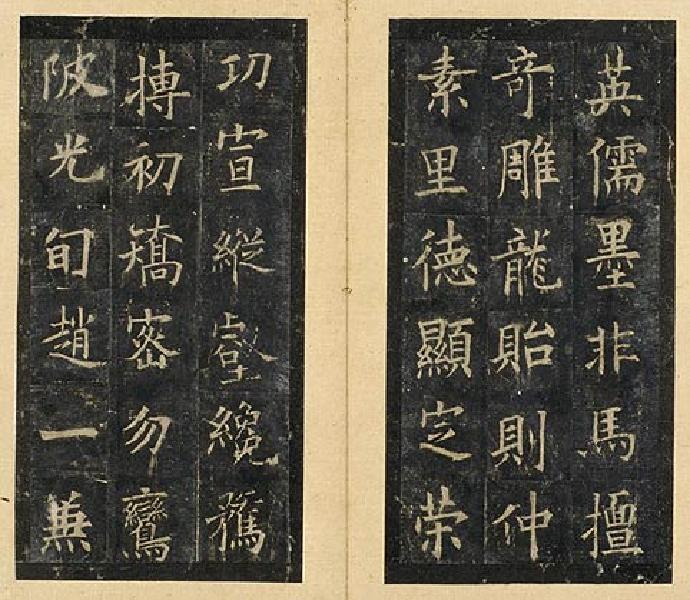 英儒墨非馬擅
奇雕龍貽則仲
素里德顯定荣
功宣縱壑纔
摶初矯密勿鸞
陂光旬趙一兼